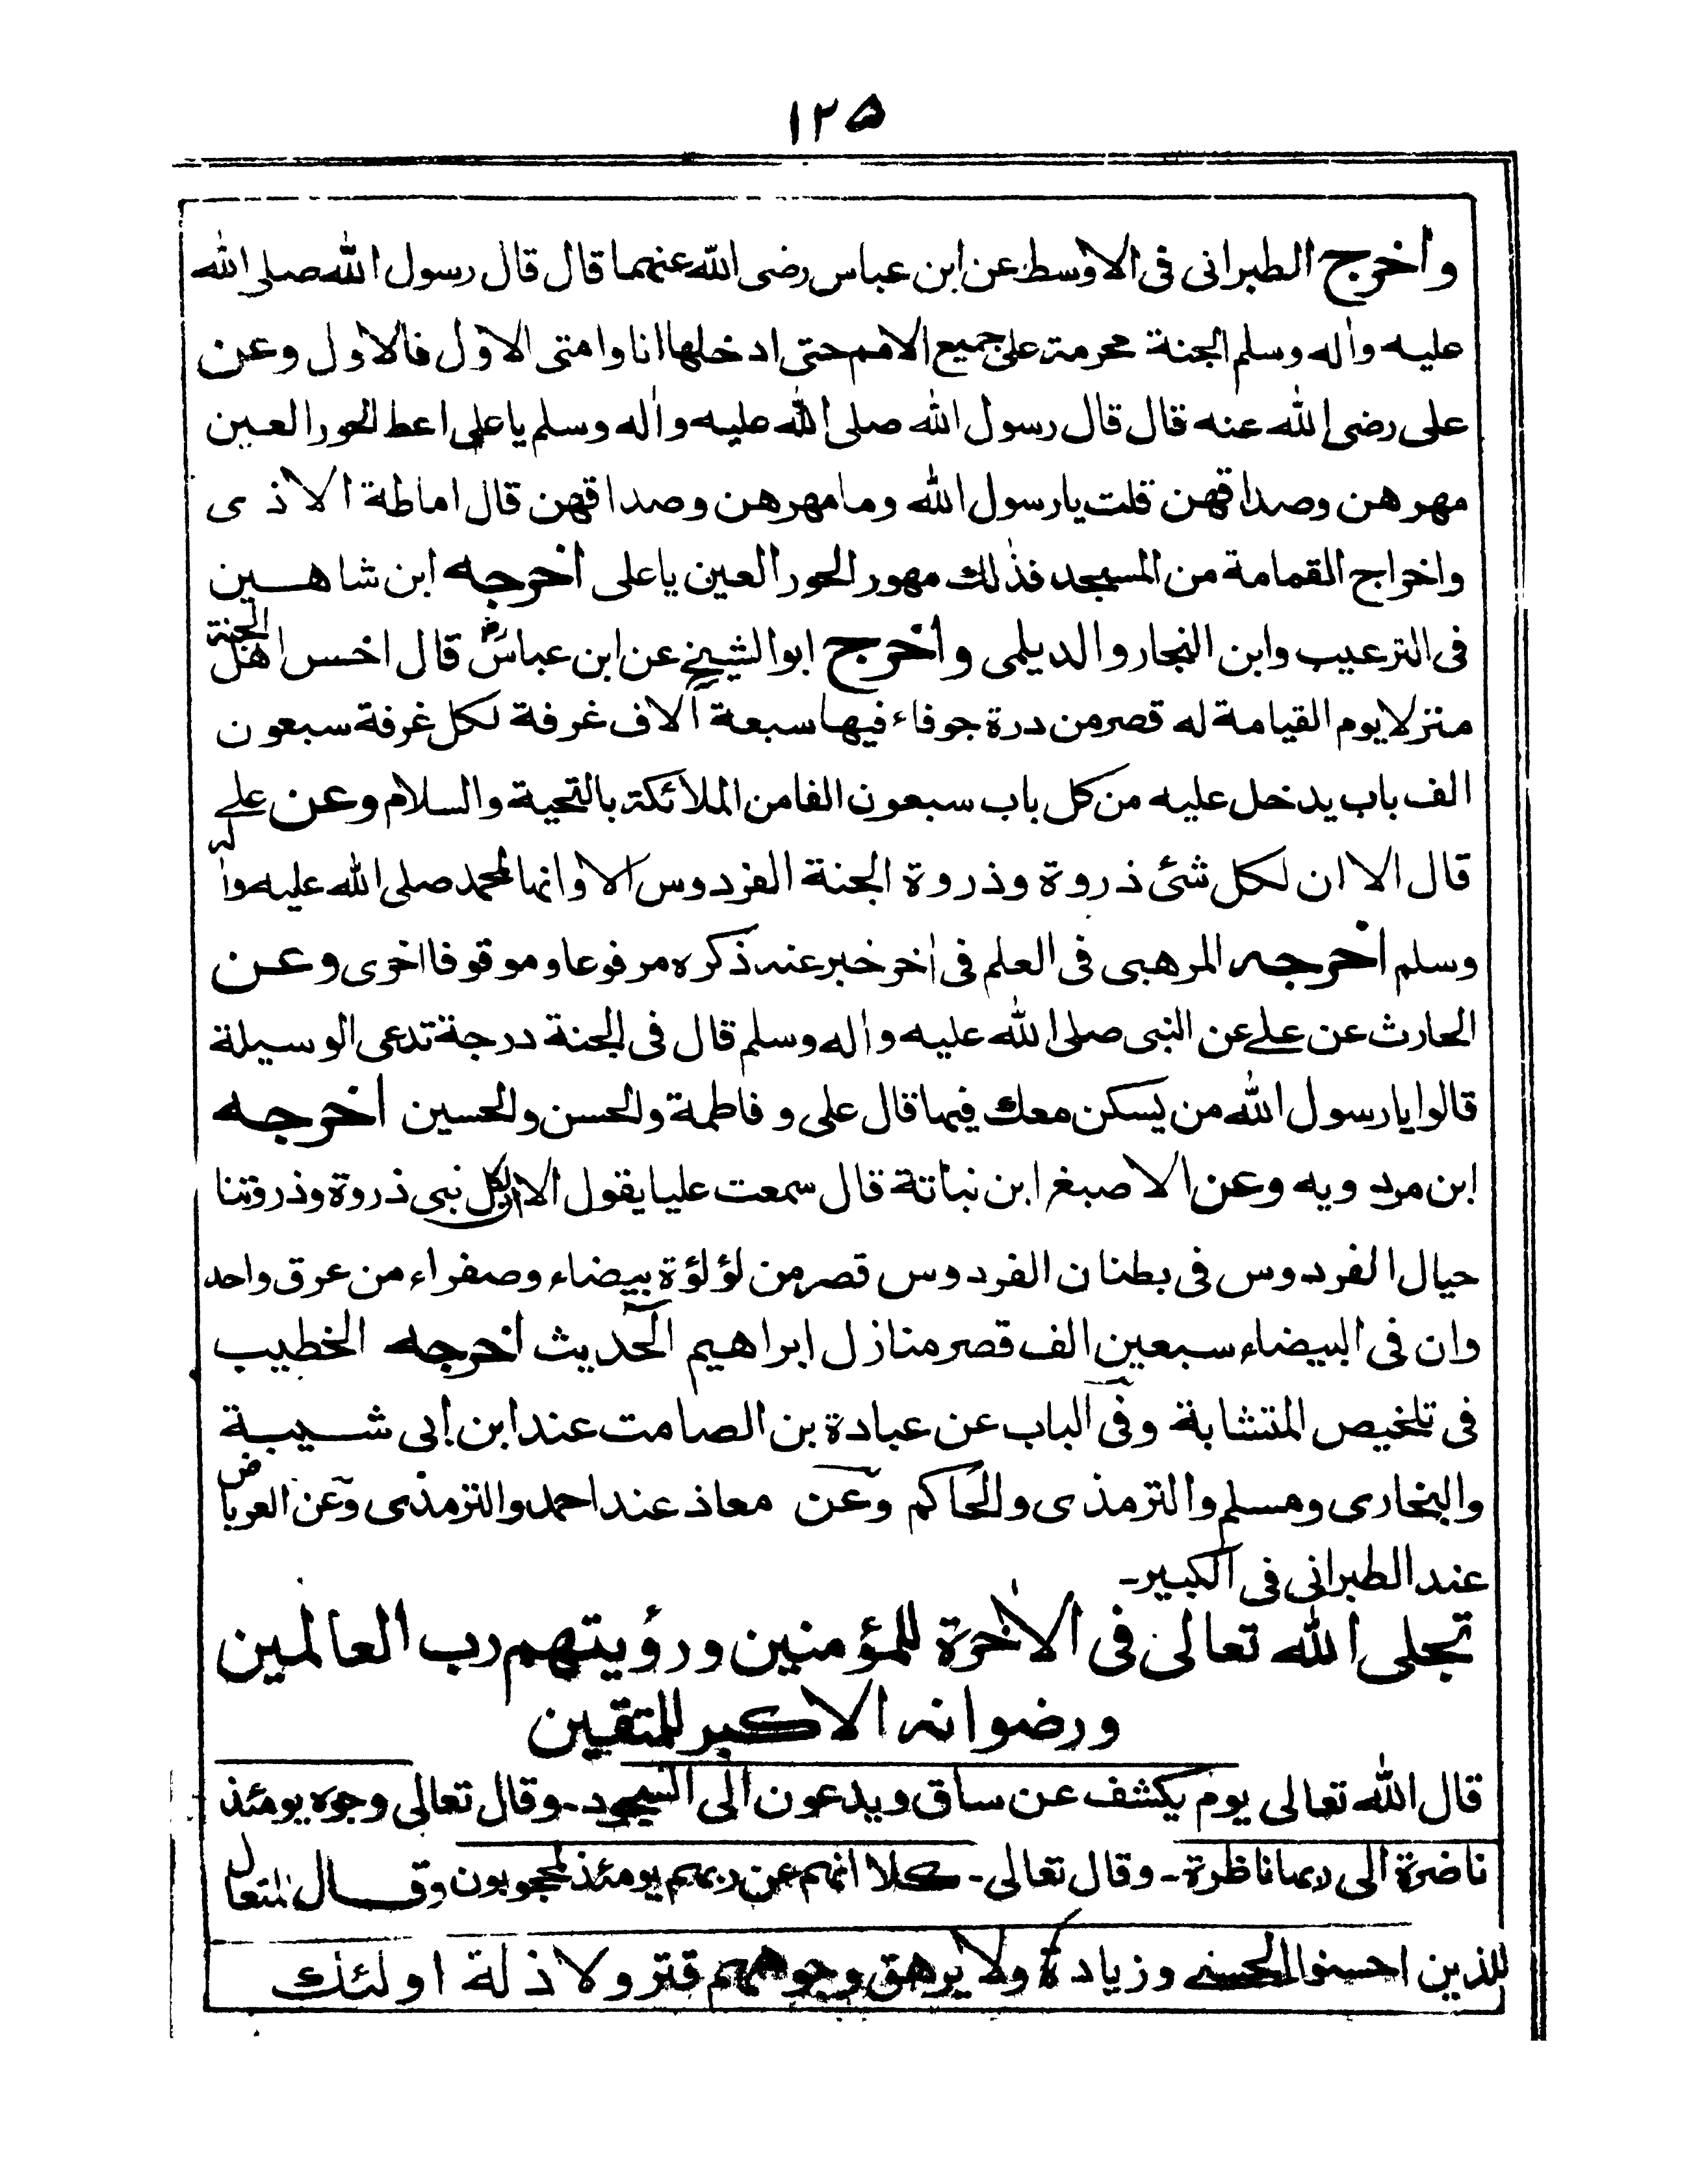 ١٢٥
واخرج الطبرانى فى الاوسط عن ابن عباس رضى الله عنهما قال قال رسول الله صلى الله
عليه واٰله وسلم الجنة محرمة على جميع الامم حتى ادخلها انا وامتى الاول فالاول وعن
على رضى الله عنه قال قال رسول الله صلى الله عليه واٰله وسلم يا على اعط الحور العين
مهرهن وصداقهن قلت يا رسول الله وما مهرهن وصداقهن قال اماطة الاذى
واخراج القمامة من المسجد فذٰلك مهور الحور العين يا على اخرجه ابن شاهين
فى الترعيب وابن النجار والديلمى واخرج ابوالشيخ عن ابن عباسؓ قال اخس اهل الجنة
منزلا يوم القيامة له قصر من درة جوفاء فيها سبعة آلاف غرفة لكل غرفة سبعون
الف باب يدخل عليه من كل باب سبعون الفا من الملائكة بالتحية والسلام وعن علے
قال الا ان لكل شئ ذروة وذروة الجنة الفردوس الا وانها لمحمد صلى الله عليه واٰله
وسلم اخرجه المرهبى فى العلم فى اٰخر خبر عنه ذكره مرفوعا وموقوفا اخرى وعن
الحارث عن علے عن النبى صلى الله عليه واٰله وسلم قال فى الجنة درجة تدعى الوسيلة
قالوا يا رسول الله من يسكن معك فيها قال على و فاطمة والحسن والحسين اخرجه
ابن مردويه وعن الاصبغ ابن نباتة قال سمعت عليا يقول الا ان لكل نبى ذروة وذروتنا
حيال الفردوس فى بطنان الفردوس قصر من لؤلؤة بيضاء وصفراء من عرق واحد
وان فى البيضاء سبعين الف قصر منازل ابراهيم الحديث اخرجه الخطيب
فى تلخيص المتشابة وفى الباب عن عبادة بن الصامت عند ابن ابى شيبة
والبخارى ومسلم والترمذى والحاكم وعن معاذ عند احمد والترمذى وعن العرباض
عند الطبرانى فى الكبير۔
تجلى الله تعالى فى الاٰخرة للمؤمنين ورؤيتهم رب العالمين
ورضوانه الاكبر للمتقين
قال الله تعالى يوم يكشف عن ساق ويدعون الى السجود۔ وقال تعالى وجوه يومئذ
ناضرة الى ربها ناظرة۔ وقال تعالى۔ كلا انهم عن ربهم يومئذ لمحجوبون وقال تعالى
للذين احسنوا الحسنے وزيادة ولا يرهق وجوههم قتر ولا ذلة اولئك